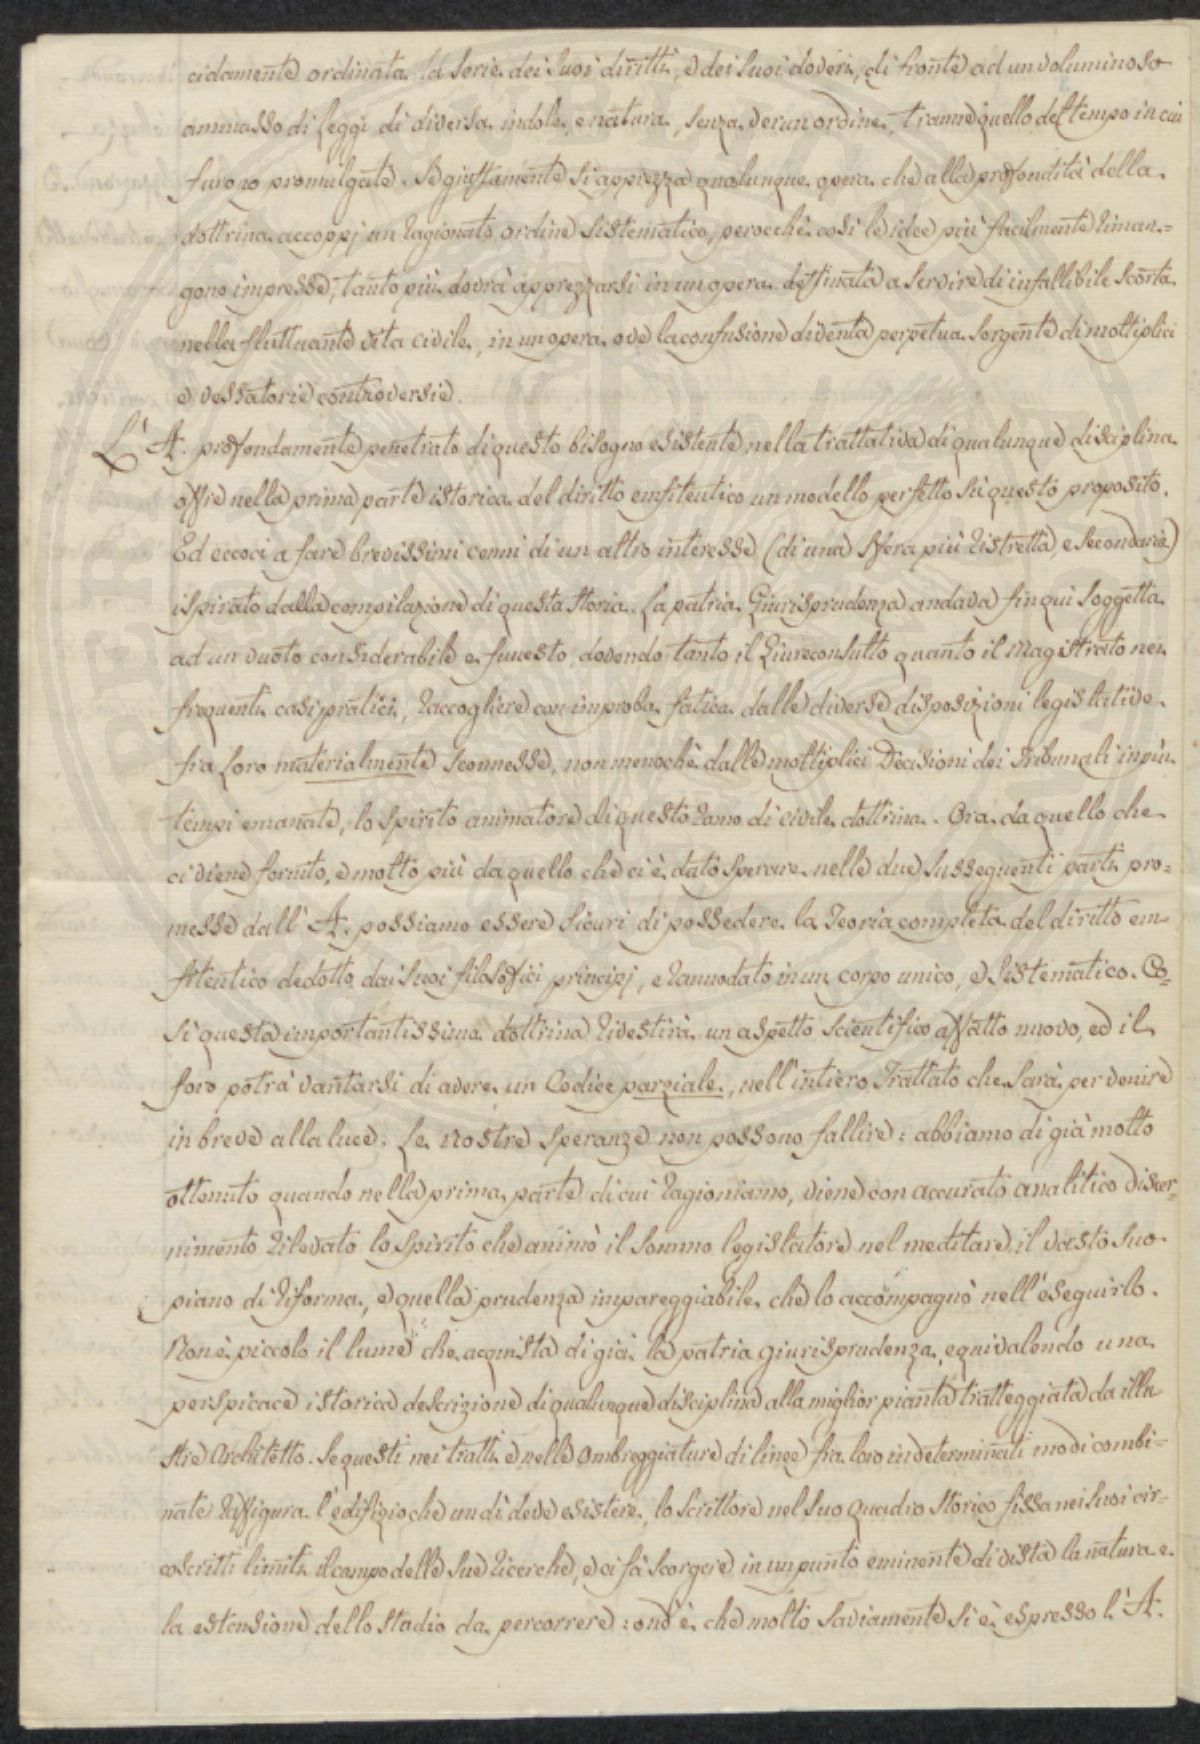 cidamente ordinata la serie dei suoi diritti, e dei suoi doveri, di fronte ad un voluminoso
ammasso di leggi di diversa indole, e natura, senza verun ordine, tranne quello del tempo in cui
furono promulgate. Se giustamente si apprezza qualunque opera che alla profondità della
dottrina accoppj un ragionato ordine sistematico, perocchè così le idee più facilmente riman-=
gono impresse; tanto più dovrà apprezzarsi in un opera destinata a servire di infallibile scorta
nella fluttuante vita civile, in un opera ove la confusione diventa perpetua sorgente di moltiplici
e vessatorie controversie.
L'A. profondamente penetrato di questo bisogno esistente nella trattativa di qualunque disciplina
offre nella prima parte istorica del diritto emfiteutico un modello perfetto su questo proposito.
Ed eccoci a fare brevissimi cenni di un altro interesse (di una sfera più ristretta, e secondaria)
ispirato dalla compilazione di questa storia. La patria Giurisprudenza andava fin qui soggetta
ad un vuoto considerabile e funesto, dovendo tanto il Giureconsulto quanto il Magistrato nei
frequenti casi pratici, raccogliere con improba fatica dalle diverse disposizioni legislative
fra loro materialmente sconnesse, non menochè dalle moltiplici Decisioni dei Tribunali in più
tempi emanate, lo spirito animatore di questo ramo di civile dottrina. Ora da quello che
ci viene fornito, e molto più da quello che ci è dato sperare nelle due susseguenti parti pro=
messe dall'A. possiamo essere sicuri di possedere la Teoria completa del diritto em-
fiteutico dedotto dai suoi filosofici principj, e rannodato in un corpo unico, e sistematico. Co=
sì questa importantissima dottrina rivestirà un aspetto scientifico affatto nuovo, ed il
foro potrà vantarsi di avere un Codice parziale, nell'intiero Trattato che sarà per venire
in breve alla luce. Le nostre speranze non possono fallire: abbiamo di già molto
ottenuto quando nella prima parte di cui ragioniamo, viene con accurato analitico discer=
nimento rilevato lo spirito che animò il sommo legislatore nel meditare il vasto suo
piano di riforma, e quella prudenza impareggiabile che lo accompagnò nell'eseguirlo.
Non è piccolo il lume che acquista di già la patria giurisprudenza, equivalendo una
perspicace istorica descrizione di qualunque disciplina alla miglior pianta tratteggiata da illu
stre Architetto. Se questi nei tratti e nelle ombreggiature di linee fra loro in determinati modi combi=
nate raffigura l'edifizio che un dì deve esistere, lo scrittore nel suo quadro storico fissa nei suoi cir-
coscritti limiti il campo delle sue ricerche, e ci fà scorgere in un punto eminente di vista la natura e
la estensione dello stadio da percorrere: ond'è che molto saviamente si è espresso l'A.